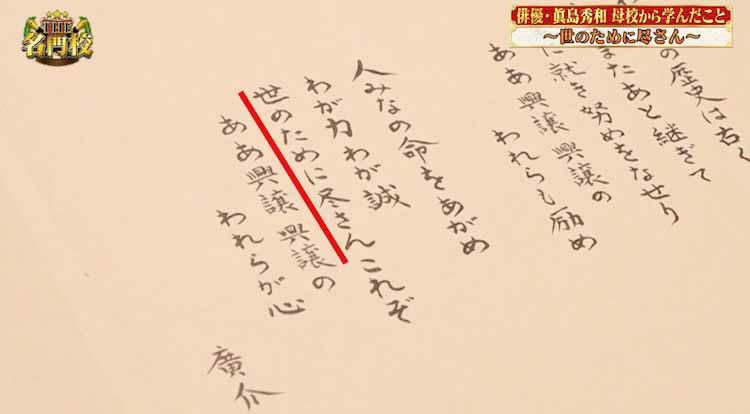 THE
名門校
俳優・眞島秀和 母校から学んだこと
～世のために尽さん～
の歴史は古く
またあと継ぎて
に就き努めをなせり
ああ興譲 興譲の
われらも励め
人みなの命をあがめ
わが力わが誠
世のために尽さんこれぞ
ああ興譲 興譲の
われらが心
廣介